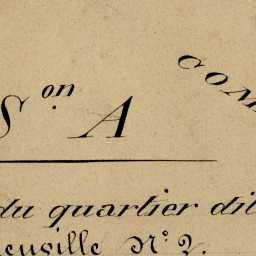 Son A
COM
du quartier dit
euville No. 2.